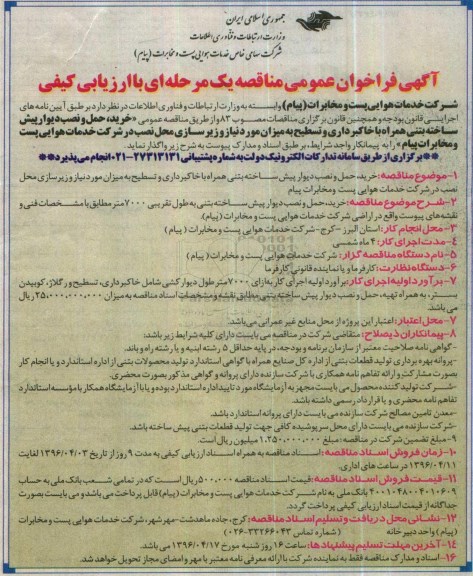 جمهوری اسلامی ایران
وزارت ارتباطات و فناوری اطلاعات
شرکت سهامی خاص خدمات هوایی پست و مخابرات (پیام)
آگهی فراخوان عمومی مناقصه یک مرحله‌ای با ارزیابی کیفی
شرکت خدمات هوایی پست و مخابرات (پیام) وابسته به وزارت ارتباطات و فناوری اطلاعات در نظر دارد بر طبق آیین نامه های
اجرایی قانون بودجه و همچنین قانون برگزاری مناقصات مصوب ۸۳ از طریق مناقصه عمومی «خرید، حمل و نصب دیوار پیش
ساخته بتنی همراه با خاکبرداری و تسطیح به میزان مورد نیاز و زیر سازی محل نصب در شرکت خدمات هوایی پست
و مخابرات پیام» را به پیمانکار واجد شرایط، بر طبق اسناد و مدارک پیوست به شرح زیر واگذار نماید.
**برگزاری از طریق سامانه تدارکات الکترونیک دولت به شماره پشتیبانی ۲۷۳۱۳۱۳۱-۰۲۱ انجام می پذیرد**
۱-موضوع مناقصه: خرید، حمل و نصب دیوار پیش ساخته بتنی همراه با خاکبرداری و تسطیح به میزان مورد نیاز و زیرسازی محل
نصب در شرکت خدمات هوایی پست و مخابرات پیام
۲-شرح موضوع مناقصه: خرید، حمل و نصب دیوار پیش ساخته بتنی به طول تقریبی ۷۰۰۰ متر مطابق با مشخصات فنی و
نقشه‌های پیوست واقع در اراضی شرکت خدمات هوایی پست و مخابرات (پیام).
۳-محل انجام کار: استان البرز – کرج – شرکت خدمات هوایی پست و مخابرات ( پیام )
۴-مدت اجرای کار: ۴ ماه شمسی
۵-نام دستگاه مناقصه گزار: شرکت خدمات هوایی پست و مخابرات ( پیام )
۶-دستگاه نظارت: کارفرما و یا نماینده قانونی کارفرما
۷-برآورد اولیه اجرای کار: برآورد اولیه اجرای کار به ازای ۷۰۰۰ متر طول دیوارکشی شامل خاکبرداری، تسطیح و رگلاژ، کوبیدن
بستر، به همراه تهیه، حمل و نصب دیوار پیش ساخته بتنی مطابق نقشه و مشخصات اسناد مناقصه به میزان ۲۵،۰۰۰،۰۰۰،۰۰۰ ریال
می باشد.
۷-محل اعتبار: اعتبار این پروژه از محل منابع غیر عمرانی می‌باشد.
۸-پیمانکاران ذیصلاح: متقاضی شرکت در مناقصه می بایست دارای کلیه شرایط زیر باشد:
-گواهی نامه صلاحیت معتبر از سازمان برنامه و بودجه، در پایه حداقل ۵ رشته ابنیه و یا رشته راه و باند.
-پروانه بهره برداری تولید قطعات بتنی از اداره کل صنایع همراه با گواهی استاندارد تولید محصولات بتنی از اداره استاندارد و یا انجام کار
بصورت مشارکت و ارائه تفاهم نامه همکاری با شرکت سازنده دارای پروانه و گواهی مذکور بصورت محضری.
-شرکت تولید کننده محصول می بایست مجهز به آزمایشگاه مورد تایید اداره استاندارد بوده و یا با آزمایشگاه همکار با مؤسسه استاندارد
تفاهم نامه محضری و یا قرارداد رسمی داشته باشد.
-معدن تامین مصالح شرکت سازنده می بایست دارای پروانه استاندارد باشد.
-شرکت سازنده می بایست دارای محل سرپوشیده کافی جهت تولید قطعات بتنی پیش ساخته باشد.
۹-مبلغ تضمین شرکت در مناقصه: مبلغ ۱،۲۵۰،۰۰۰،۰۰۰ میلیون ریال است.
۱۰-زمان فروش اسناد مناقصه: اسناد مناقصه به همراه اسناد ارزیابی کیفی به مدت ۹ روز از تاریخ ۱۳۹۶/۰۴/۰۳ لغایت
۱۳۹۶/۰۴/۱۱ در ساعت های اداری.
۱۱-قیمت فروش اسناد مناقصه: قیمت اسناد مناقصه ۵۰۰،۰۰۰ ریال است که در تمامی شعب بانک ملی به حساب
۴۰۰۱۰۴۸۰۰۴۰۱۰۶۰۹ بانک ملی به نام شرکت خدمات هوایی پست و مخابرات (پیام) قابل پرداخت می باشد و می بایست بصورت
جداگانه از قیمت اسناد ارزیابی کیفی پرداخت گردد.
۱۲-نشانی محل دریافت و تسلیم اسناد مناقصه: کرج، جاده ماهدشت-مهرشهر، شرکت خدمات هوایی پست و مخابرات
(پیام) واحد دبیرخانه ( شماره تماس ۳۳۲۶۶۰۴۳-۰۲۶)
۱۴-آخرین مهلت تسلیم پیشنهادها: ساعت ۱۶ روز شنبه مورخ ۱۳۹۶/۰۴/۱۷ می باشد.
۱۶-اسناد و مدارک مناقصه فقط به نماینده شرکت با ارائه معرفی نامه معتبر با مهر و امضای مجاز تحویل خواهد شد.